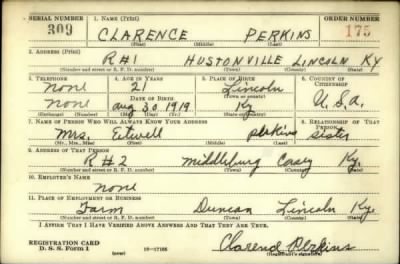 SERIAL NUMBER 1. NAME (Print) ORDER NUMBER
309 CLARENCE PERKINS 175
(First) (Middle) (Last)
2. ADDRESS (Print)
R#1 HUSTONVILLE LINCOLN KY
(Number and street or R. F. D. number) (Town) (County) (State)
3. TELEPHONE 4. AGE IN YEARS 5. PLACE OF BIRTH 6. COUNTRY OF CITIZENSHIP
None 21 Lincoln
DATE OF BIRTH (Town or county)
None Aug 30 1919 Ky U.S.A.
(Exchange) (Number) (Mo.) (Day) (Yr.) (State or country)
7. NAME OF PERSON WHO WILL ALWAYS KNOW YOUR ADDRESS 8. RELATIONSHIP OF THAT PERSON
Mrs. Perkins Sister
(Mr., Mrs., Miss) (First) (Middle) (Last)
9. ADDRESS OF THAT PERSON
R#2 Middleburg Casey Ky.
(Number and street or R. F. D. number) (Town) (County) (State)
10. EMPLOYER'S NAME
None
11. PLACE OF EMPLOYMENT OR BUSINESS
Farm Duncan Lincoln Ky.
(Number and street or R. F. D. number) (Town) (County) (State)
I AFFIRM THAT I HAVE VERIFIED ABOVE ANSWERS AND THAT THEY ARE TRUE.
REGISTRATION CARD
D. S. S. Form 1 (over) 16-17105 Clarence Perkins
(Registrant's signature)